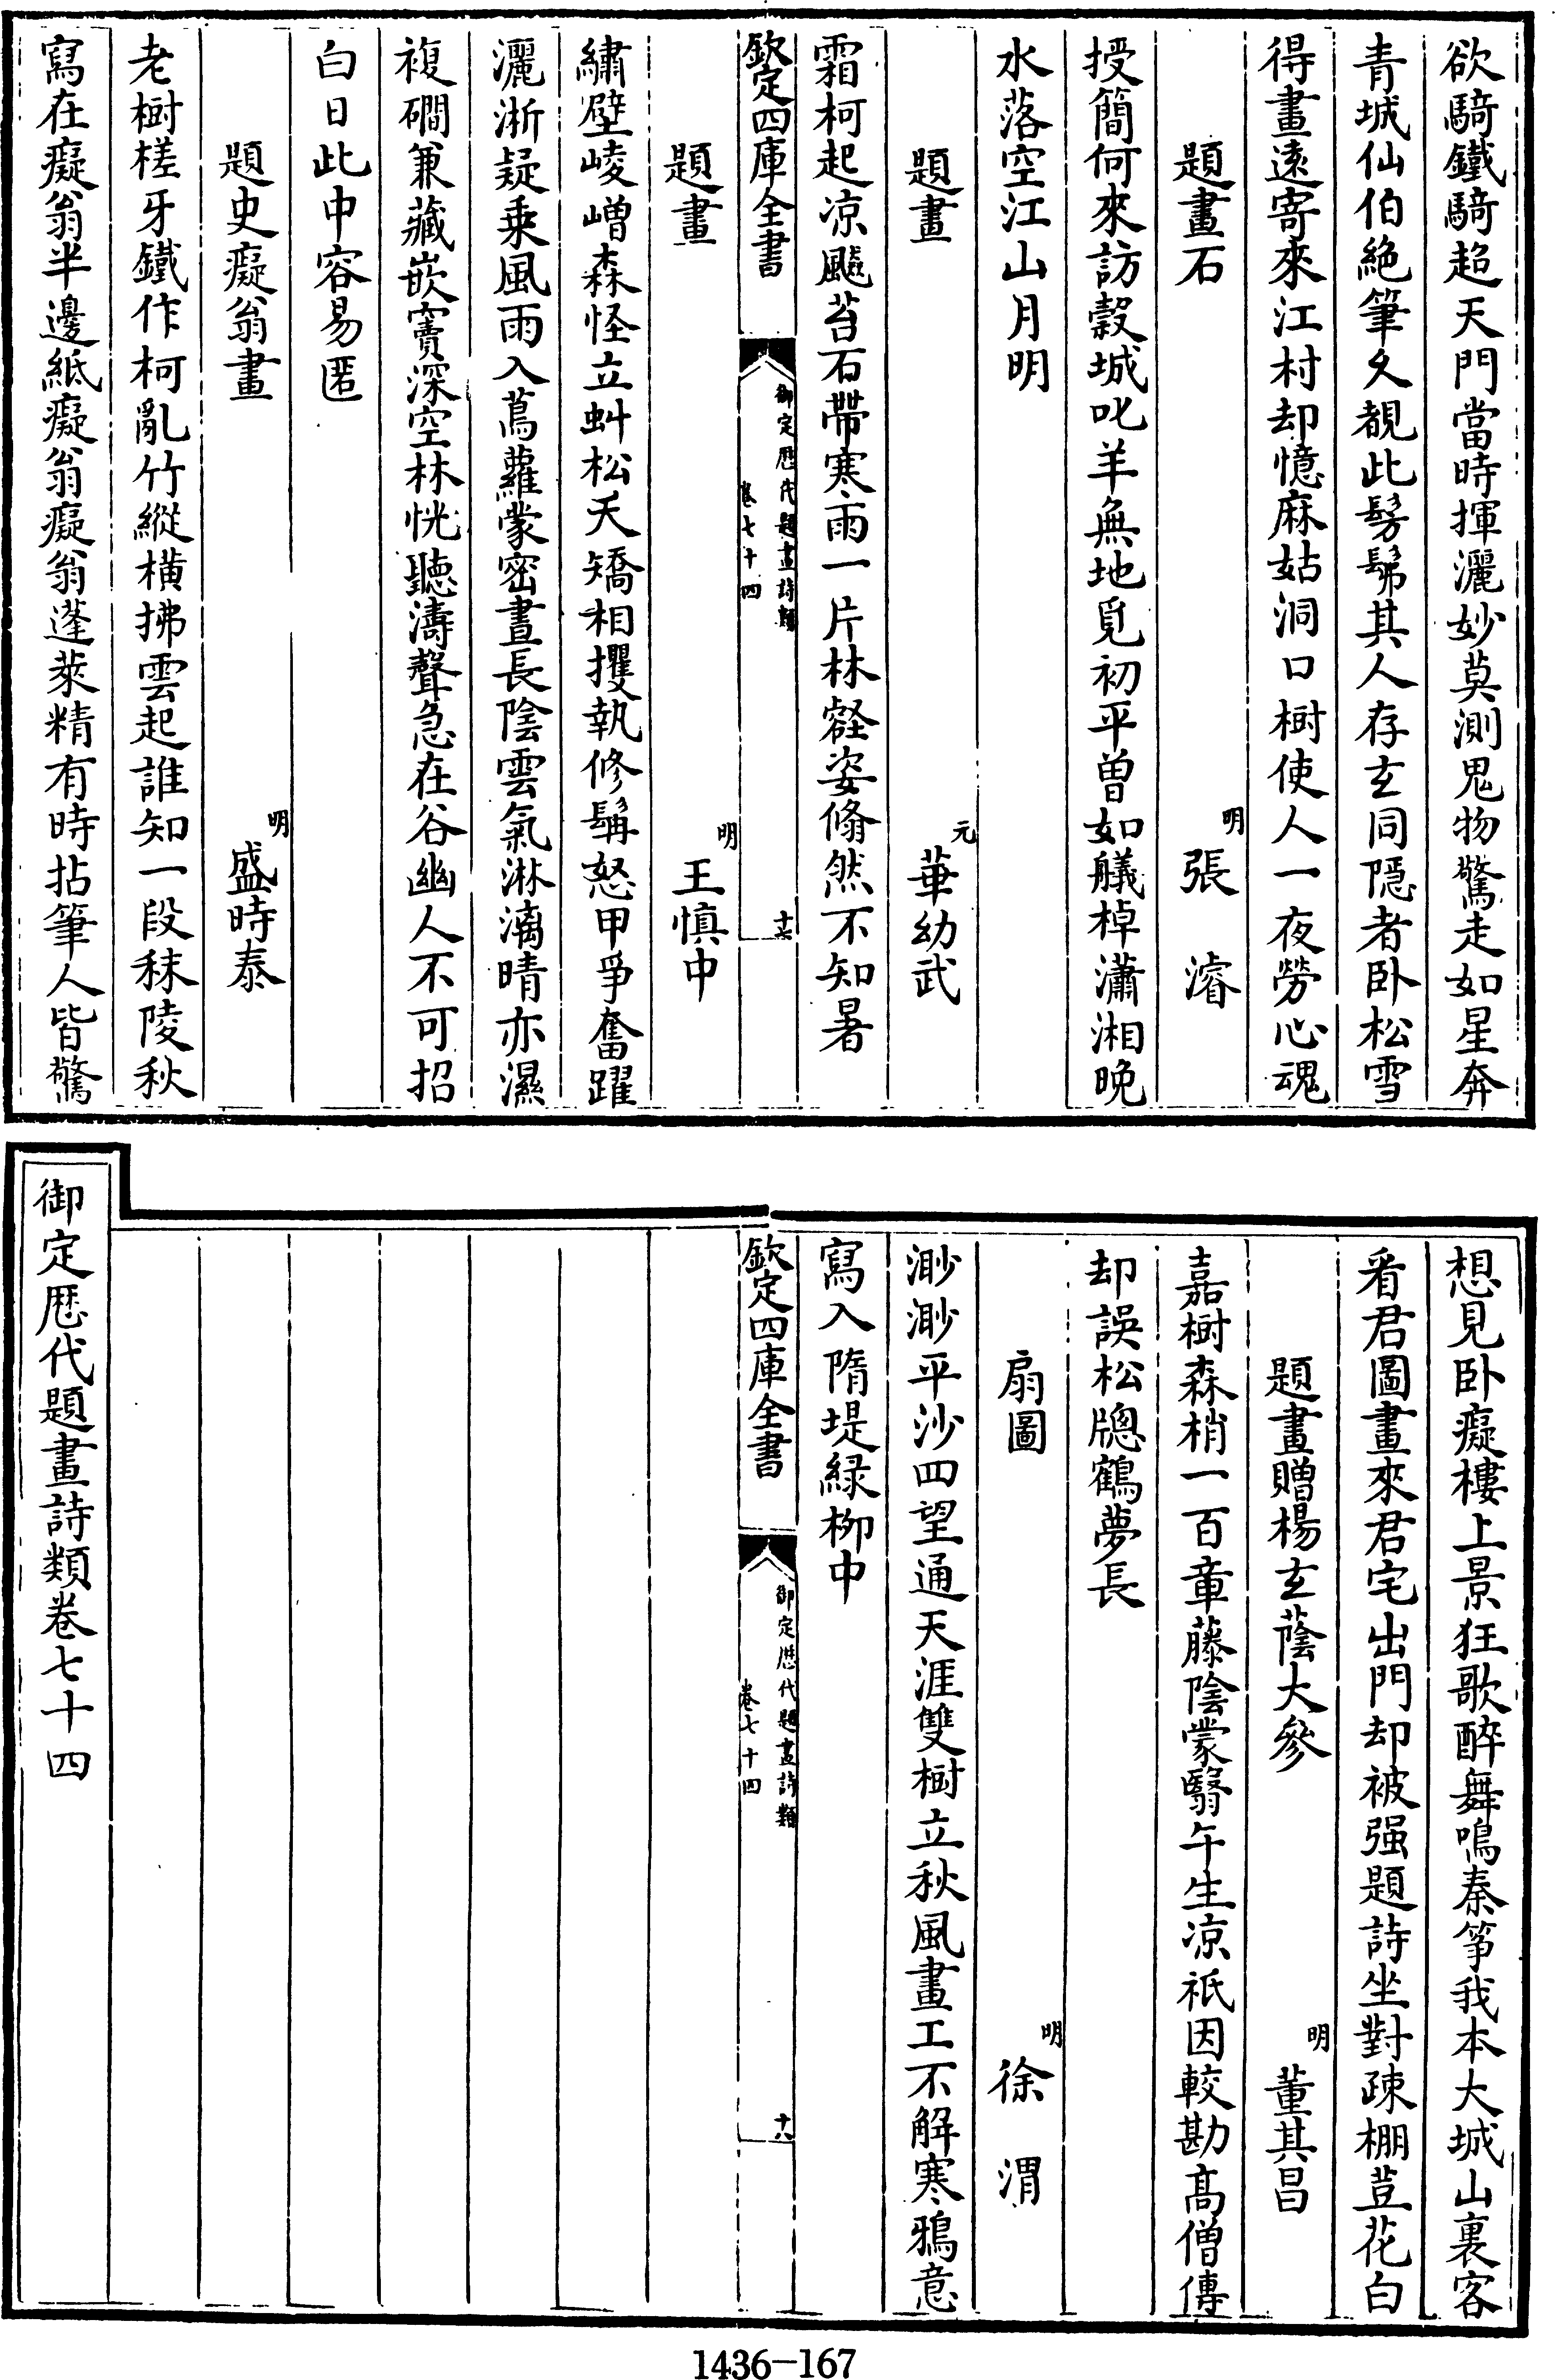 欲騎鐵騎超天門當時揮灑妙莫測鬼物驚走如星奔
青城仙伯絶筆久覩此髣髴其人存玄同隠者卧松雪
得畫遠寄來江村却憶麻姑洞口樹使人一夜勞心魂
題畫石
明
張濬
授簡何來訪穀城叱羊無地覓初平曾如艤棹瀟湘晚
水落空江山月明
題畫
元
華幼武
霜柯起凉飈苔石帶寒雨一片林壑姿翛然不知暑
欽定四庫全書
御定歴代題畫詩類
卷七十四
十六
題畫
明
王慎中
繡壁崚嶒森怪立虯松夭矯相攫執修髯怒甲爭奮躍
灑淅疑乗風雨入蔦蘿蒙密晝長陰雲氣淋漓晴亦濕
複磵兼藏嵌竇深空林恍聽濤聲急在谷幽人不可招
白日此中容易匿
題史癡翁畫
明
盛時泰
老樹槎牙鐵作柯亂竹縱横拂雲起誰知一段秣陵秋
寫在癡翁半邊紙癡翁癡翁蓬萊精有時拈筆人皆驚
想見卧癡樓上景狂歌醉舞鳴秦筝我本大城山裏客
看君圖畫來君宅出門却被强題詩坐對疎棚荳花白
題畫贈楊玄蔭大參
明
董其昌
嘉樹森梢一百章藤陰蒙翳午生凉祇因較勘髙僧傳
却誤松牕鶴夢長
扇圖
明
徐渭
渺渺平沙四望通天涯雙樹立秋風畫工不解寒鴉意
寫入隋堤緑柳中
欽定四庫全書
御定歴代題畫詩類
卷七十四
十八
御定歴代題畫詩類卷七十四
1436-167